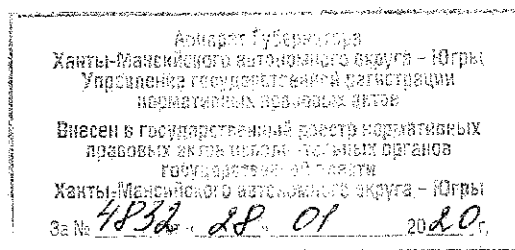 Аппарат Губернатора
Ханты-Мансийского автономного округа – Югры
Управление государственной регистрации
нормативных правовых актов
Внесен в государственный реестр нормативных
правовых актов исполнительных органов
государственной власти
Ханты-Мансийского автономного округа – Югры
За № 4832 « 28 » 01 2020 г.